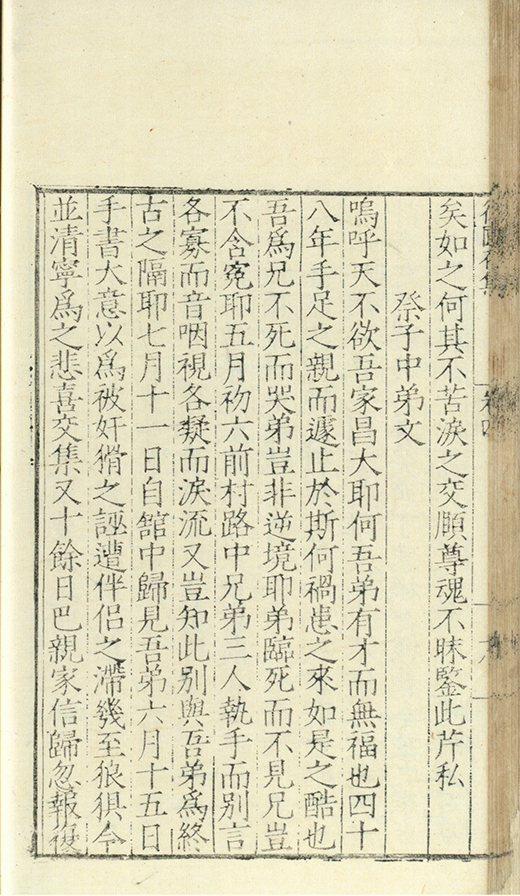 卷四
矣如之何其不苦淚之交願尊魂不昧鑒此芹私
祭子中弟文
嗚呼天不欲吾家昌大耶何吾弟有才而無福也四十
八年手足之親而遽止於斯何禍患之來如是之酷也
吾爲兄不死而哭弟豈非逆境耶弟臨死而不見兄豈
不含寃耶五月初六前村路中兄弟三人執手而別言
各寡而音咽視各凝而淚流又豈知此別與吾弟爲終
古之隔耶七月十一日自舘中歸見吾弟六月十五日
手書大意以爲被奸猾之誣遭伴侶之滯幾至狼狽今
並清寧爲之悲喜交集又十餘日巴親家信歸忽報復